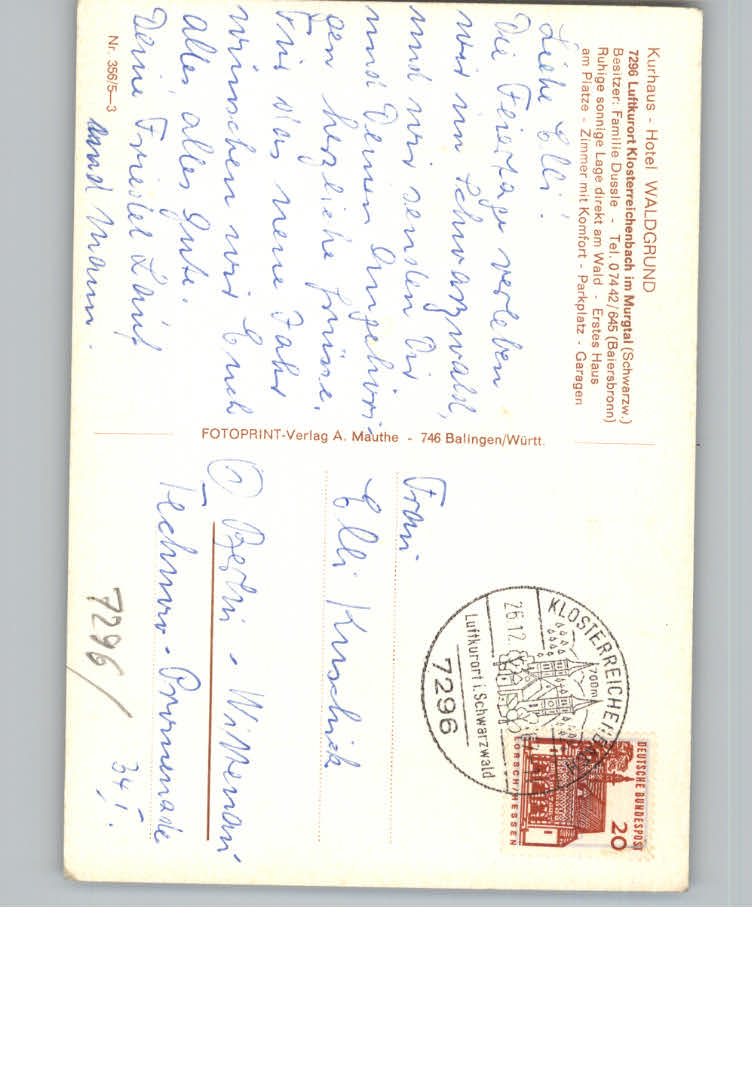 Kurhaus - Hotel WALDGRUND
7296 Luftkurort Klosterreichenbach im Murgtal (Schwarzw.)
Besitzer: Familie Dussle - Tel. 07442/645 (Baiersbronn)
Ruhige sonnige Lage direkt am Wald - Erstes Haus
am Platze - Zimmer mit Komfort - Parkplatz - Garagen
Liebe Elli!
Die Feiertage verleben
wir im Schwarzwald,
und wir senden Dir
und Deinen Angehöri-
gen herzliche Grüsse.
Für das neue Jahr
wünschen wir Euch
alles, alles Gute.
Deine Friedel
und Mann.
Nr. 356/5—3
FOTOPRINT-Verlag A. Mauthe - 746 Balingen/Württ.
KLOSTERREICHENBACH
700m
26.12.
Luftkurort i. Schwarzwald
7296
DEUTSCHE BUNDESPOST
20
LORSCH/HESSEN
Frau
Elli
(1) Berlin - Wittenau
Techno - Promenade
34
7296/